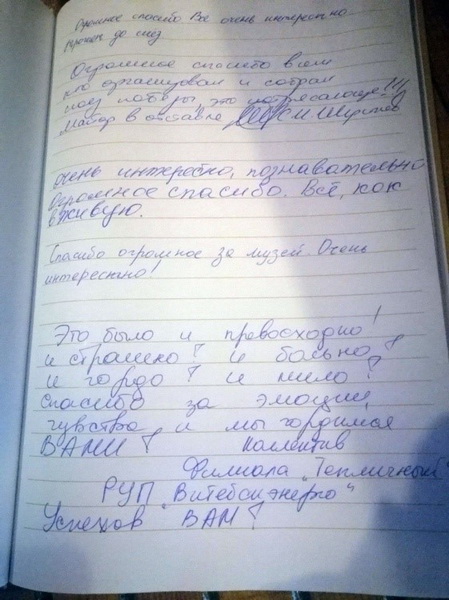 Огромное спасибо Все очень интересно
до слёз
Огромное спасибо всем
кто организовал и собрал
под победы, это потрясающе!!!
Майор в отставке
Очень интересно, познавательно
Огромное спасибо. Всё, как
вживую.
Спасибо огромное за музей. Очень
интересно!
Это было и превосходно!
и страшно! и больно!
и гордо! и мило!
Спасибо за эмоции,
чувства и мы гордимся
ВАМИ! Коллектив
Филиала "Тепличный"
РУП "Витебскэнерго"
Успехов ВАМ!